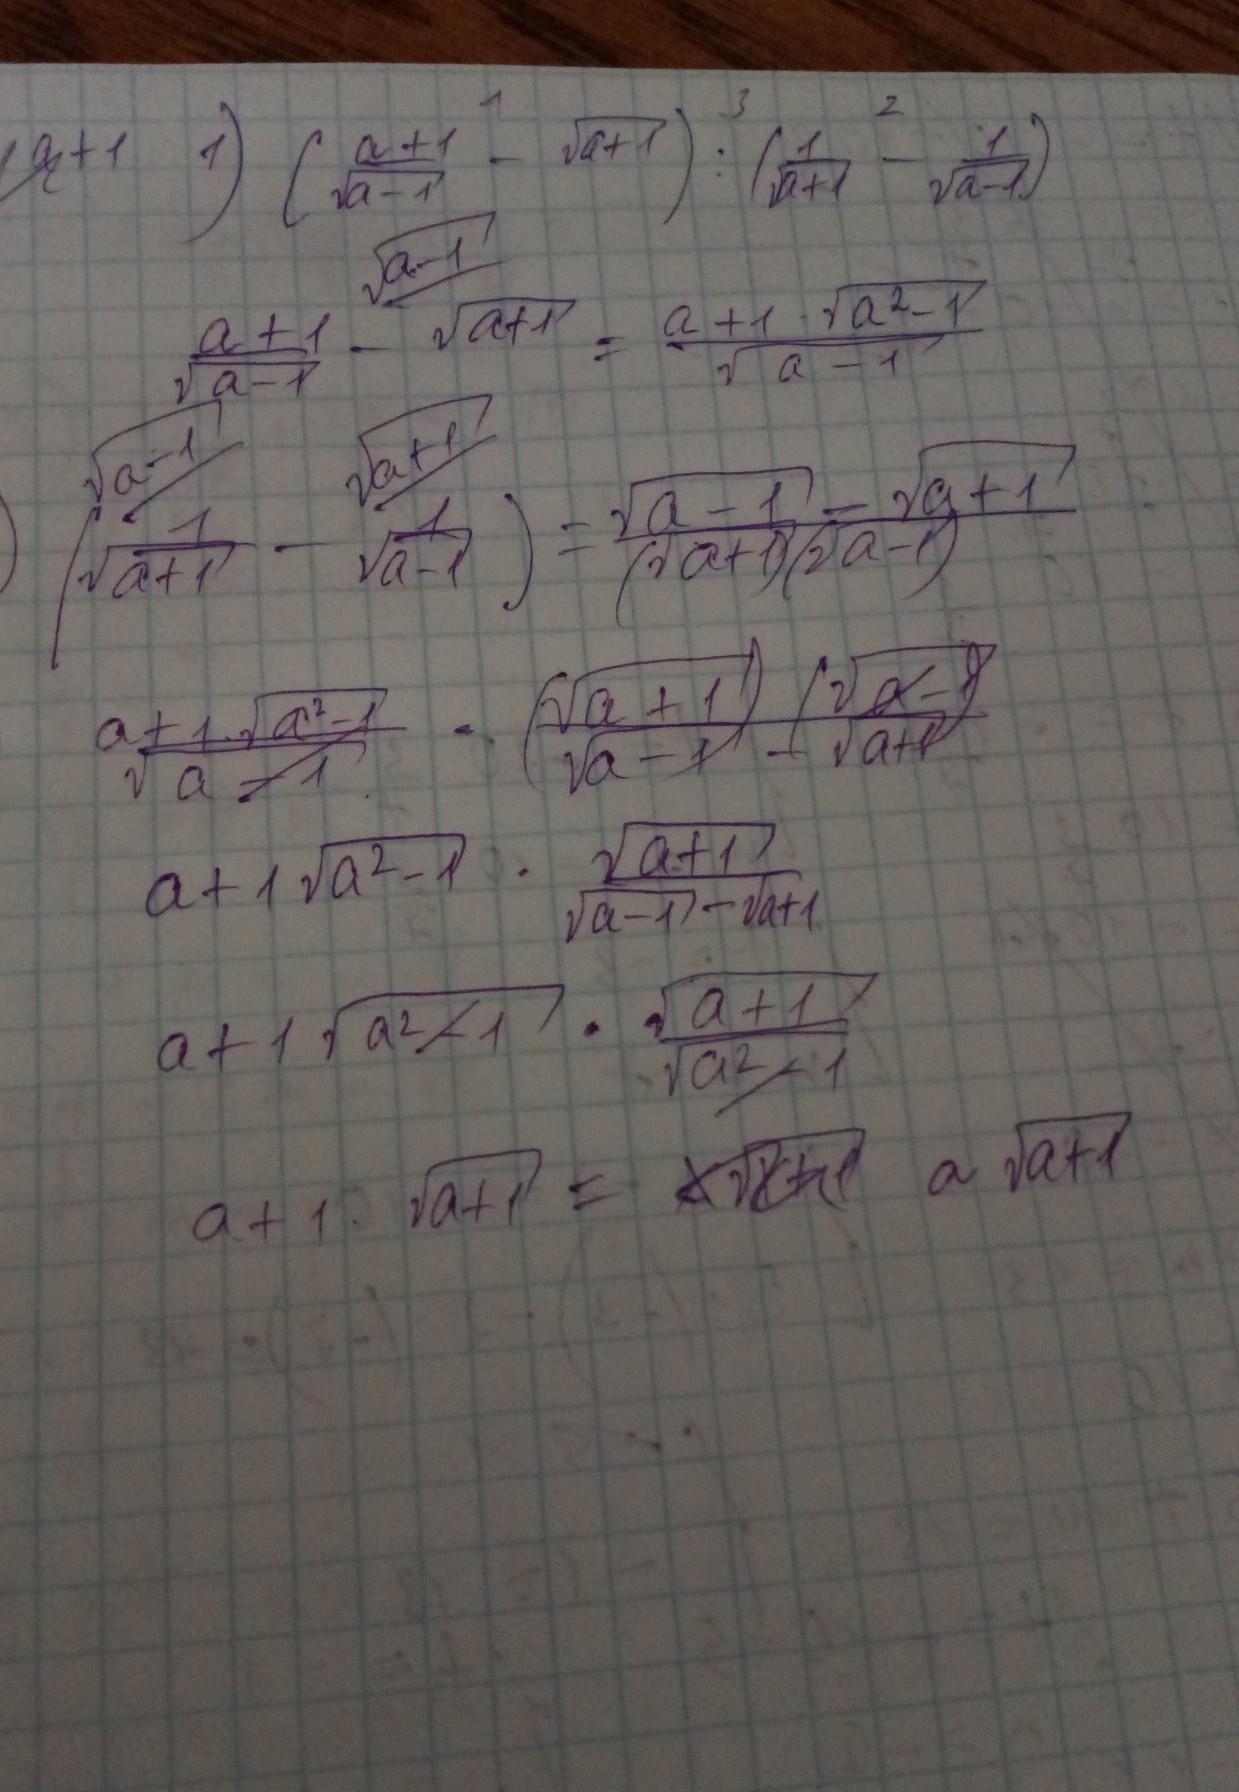 a+1 1) (a+1/√(a-1) - √(a+1)) : (1/√(a+1) - 1/√(a-1))
1 3 2
√(a-1)
a+1/√(a-1) - √(a+1) = a+1·√(a²-1)/√(a-1)
√(a-1) √(a+1)
) (1/√(a+1) - 1/√(a-1)) = √(a-1) - √(a+1)/(√(a+1))(√(a-1))
a+1·√(a²-1)/√(a-1) · (√(a+1))(√(a-1))/√(a-1) - √(a+1)
a+1√(a²-1) · √(a+1)/√(a-1)-√(a+1)
a+1√(a²-1) · √(a+1)/√(a²-1)
a+1·√(a+1) = a√(a+1)